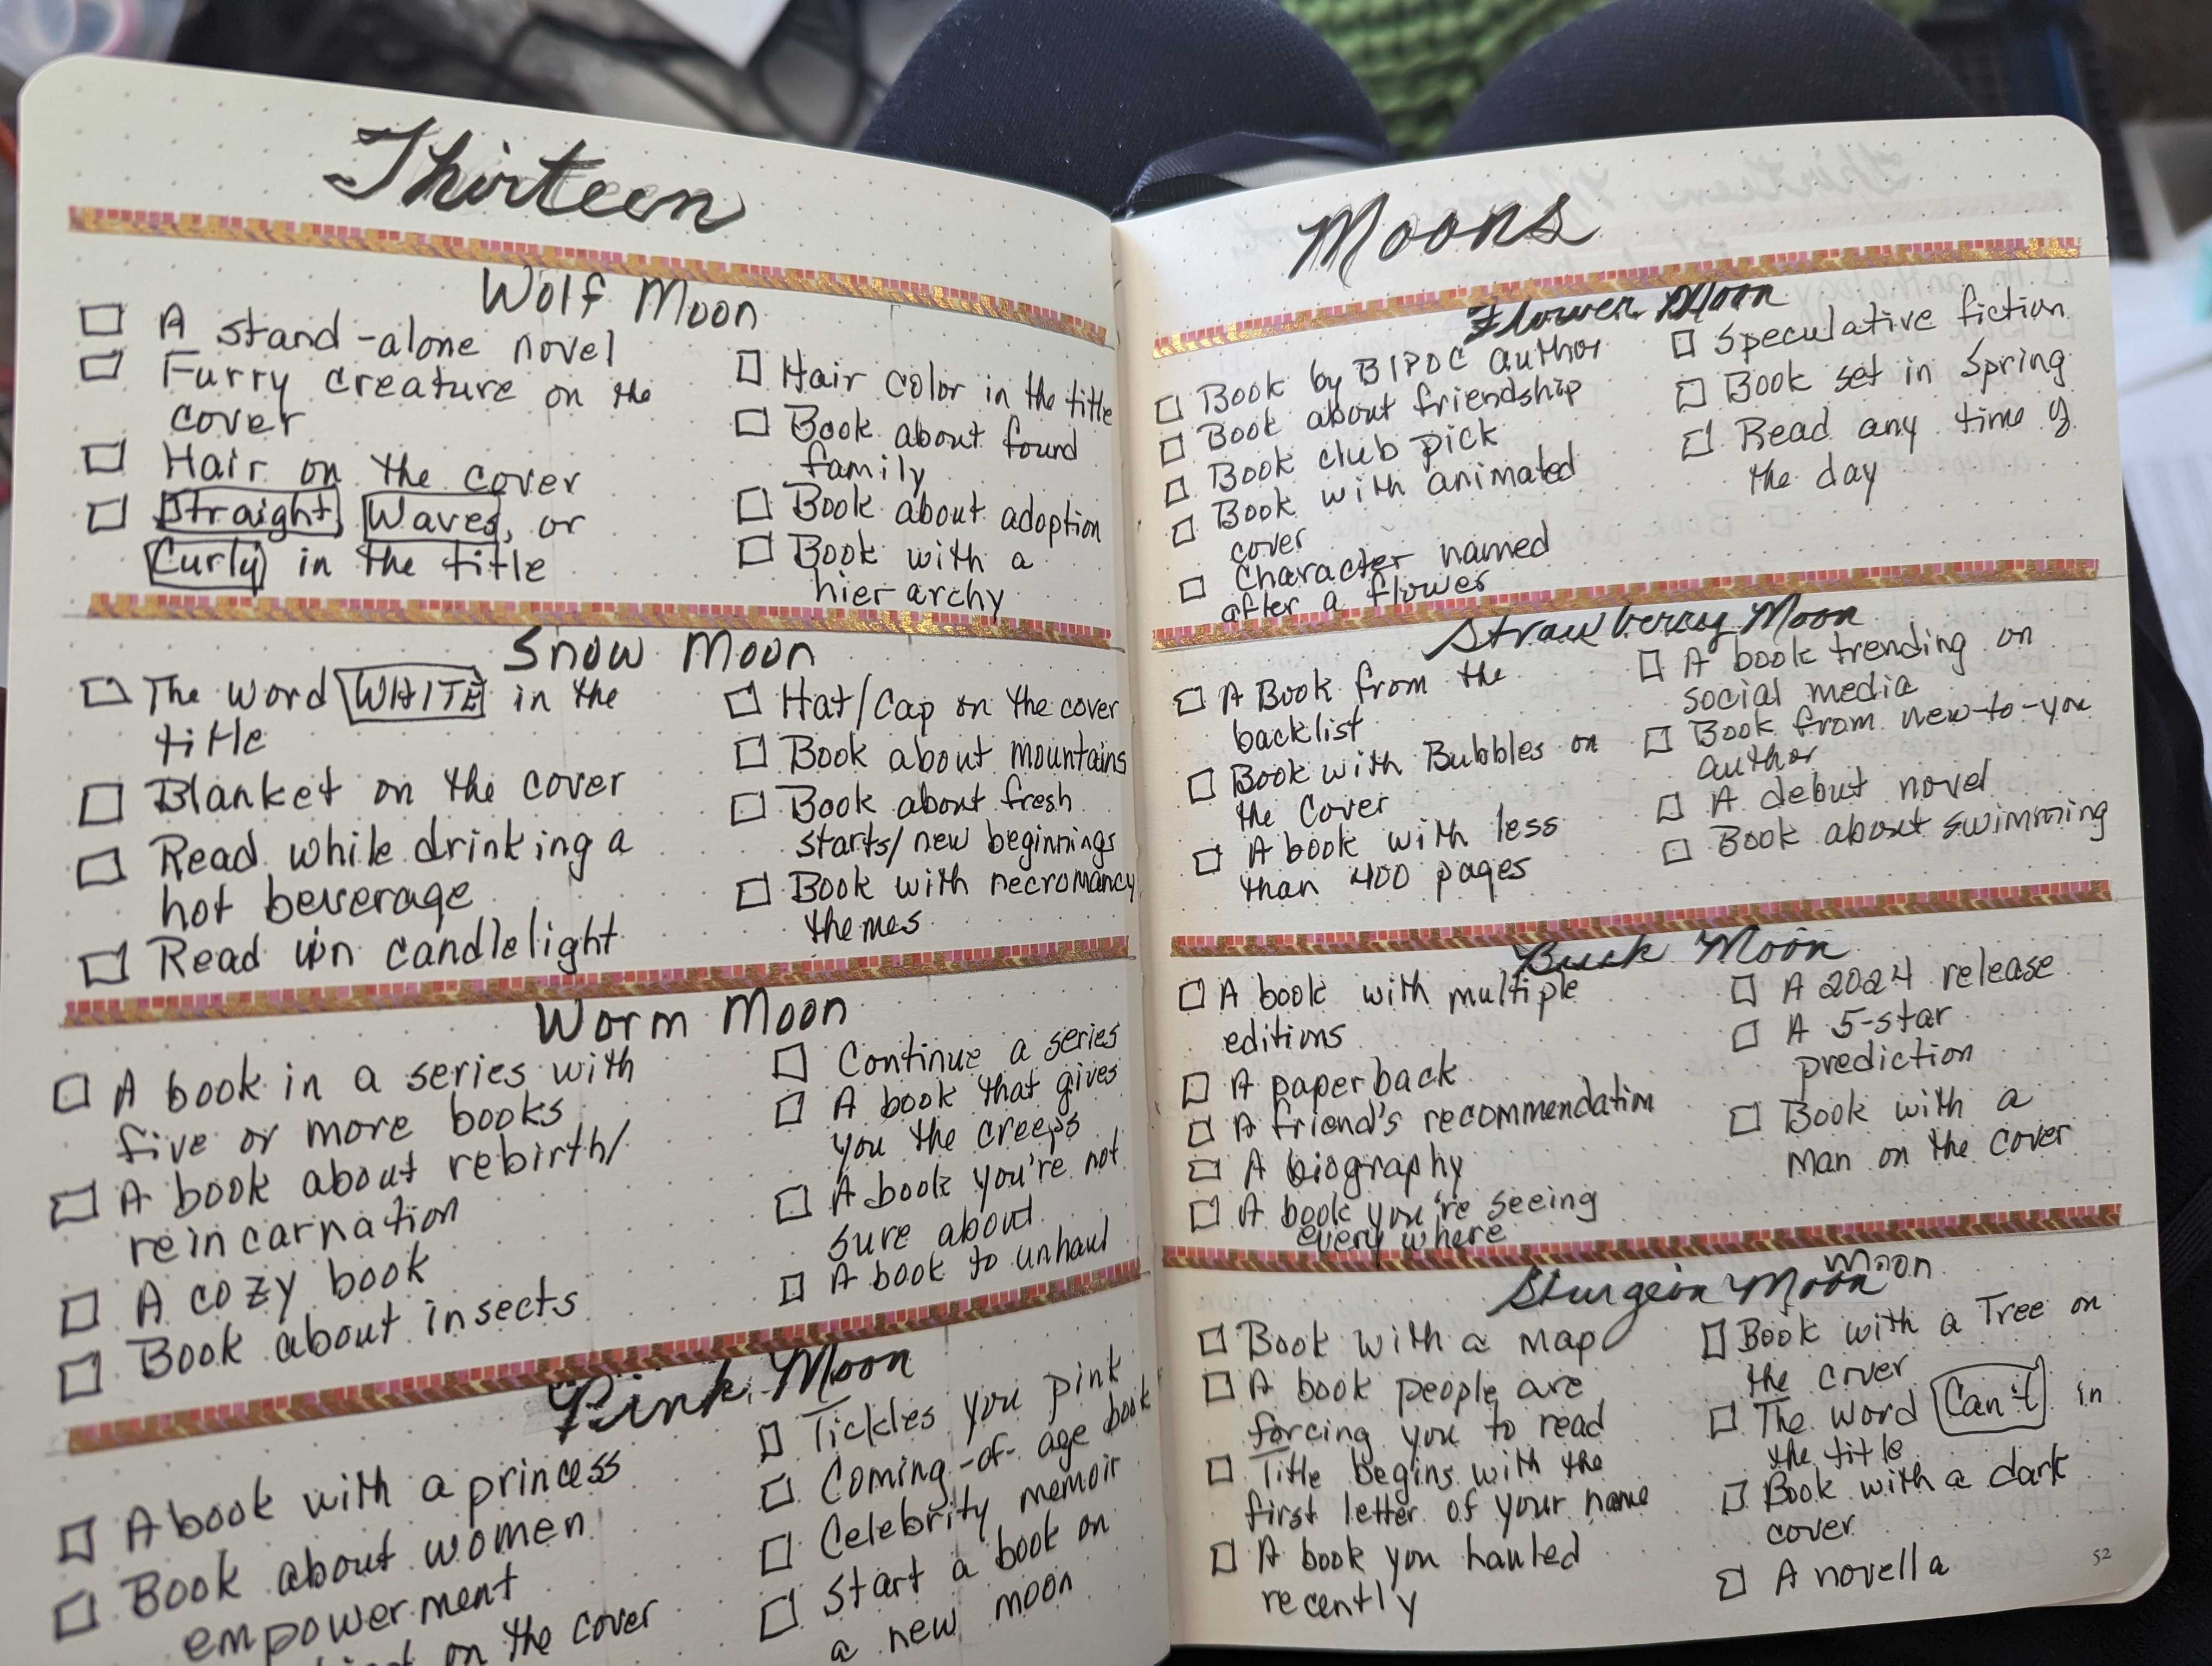 Thirteen
Wolf Moon
A stand-alone novel
Furry creature on the
cover
Hair on the cover
Straight, Waves, or
Curly in the title
Hair color in the title
Book about found
family
Book about adoption
Book with a
hierarchy
Snow Moon
The word WHITE in the
title
Blanket on the cover
Read while drinking a
hot beverage
Read in candlelight
Hat/Cap on the cover
Book about mountains
Book about fresh
starts/new beginnings
Book with necromancy
themes
Worm Moon
A book in a series with
five or more books
A book about rebirth/
reincarnation
A cozy book
Book about insects
Continue a series
A book that gives
you the creeps
A book you're not
sure about
A book to unhaul
Pink Moon
A book with a princess
Book about women
empowerment
on the cover
Tickles you pink
Coming-of-age book
Celebrity memoir
Start a book on
a new moon
Moons
Flower Moon
Book by BIPOC author
Book about friendship
Book club pick
Book with animated
cover
Character named
after a flower
Speculative fiction
Book set in Spring
Read any time of
the day
Strawberry Moon
A Book from the
backlist
Book with Bubbles on
the Cover
A book with less
than 400 pages
A book trending on
social media
Book from new-to-you
author
A debut novel
Book about swimming
Buck Moon
A book with multiple
editions
A paperback
A friend's recommendation
A biography
A book you're seeing
everywhere
A 2024 release
A 5-star
prediction
Book with a
Man on the cover
Moon
Sturgeon Moon
Book with a Map
A book people are
forcing you to read
Title begins with the
first letter of your name
A book you hauled
recently
Book with a Tree on
the cover
The word Can't in
the title
Book with a dark
cover
A novella
52